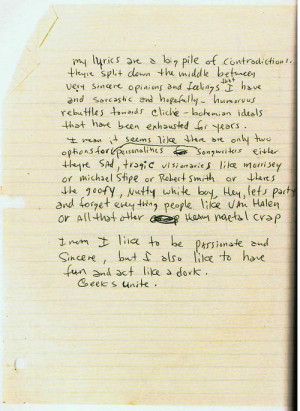 my lyrics are a big pile of contradictions.
theyre split down the middle between
very sincere opinions and feelings that I have
and sarcastic and hopefully - humorous
rebuttles towards cliche - bohemian ideals
that have been exhausted for years.
I mean it seems like there are only two
options for personalities songwriters either
theyre sad, tragic visionaries like morrisey
or michael Stipe or Robert smith or theres
the goofy, nutty white boy, Hey, lets party
and forget everything people like Van Halen
or All that other Heavy metal crap
I mean I like to be passionate and
sincere, but I also like to have
fun and act like a dork.
Geeks unite.